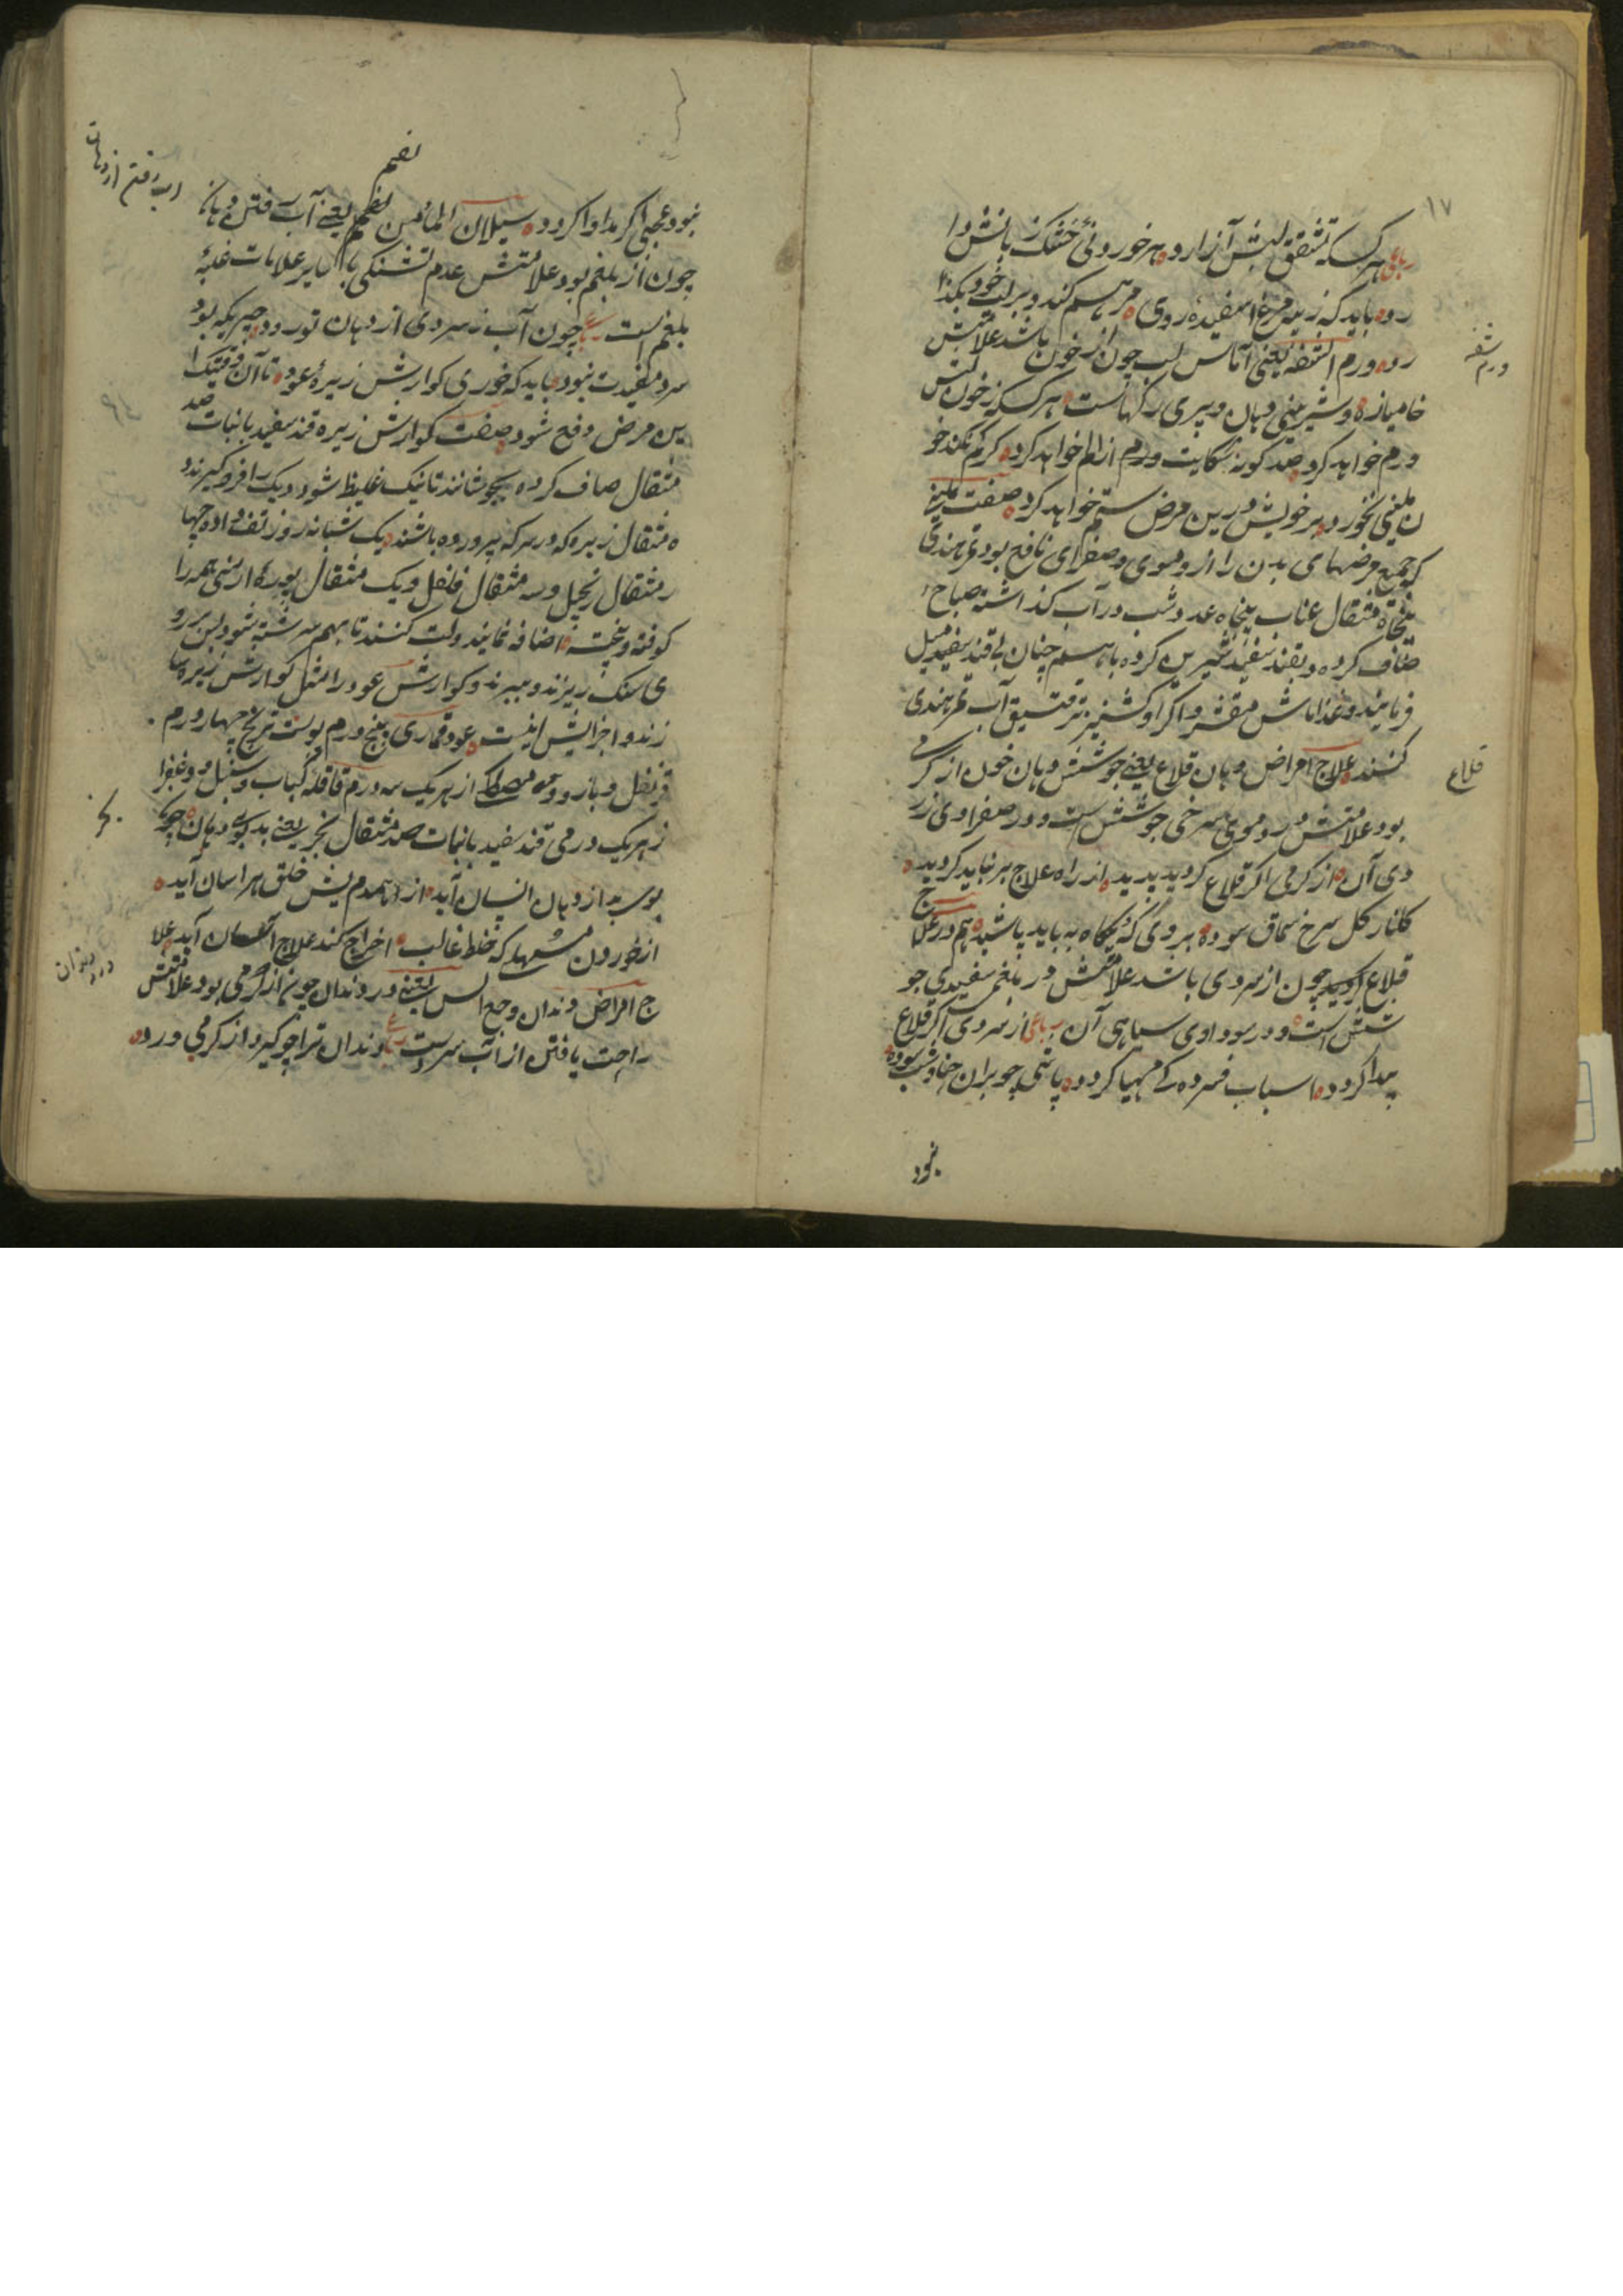 ۱۷
رباعی هر کسکه تشقق لبش آزارد هر خوردنئ خشک زبانش دا
رد باید که ز پیه مرغ اسفیدهٔ روی مرهم کند و بر لب خود بگذا
رد ورم الشفه یعنی آماس لب چون از خون باشد علامتش
ورم شفه
خامیازه و شیرینی دهان و پری رکهاست هر کسکه ز خون لبش
ورم خواهد کرد صد کونه شکایت ورم از الم خواهد کرد کرم نکند خو
ن ملینی نخورد بر خویش درین مرض ستم خواهد کرد صفت ملینی
که جمیع مرضهای بدن را از دموی و صفرای نافع بود تمرهندی
پنجاه مثقال عناب پنجاه عدد شب در آب کذاشته صباح
صاف کرده و بقند سفید شیرین کرده باهم چنان بی قند سفید میل
فرمایند و غذا ماش مقشر و اکرا و کشنیز تر قتیق آب تمرهندی
کنند علاج امراض دهان قلاع یعنی جوشش دهان خون از کرمی
قلاع
بود علامتش در دموی سرخی جوشش است و در صفراوی زر
دی آن از کرمی اکر قلاع کردید پدید از راه علاج بر نباید کردید
کلنار کل سرخ سماق سوده بر وی که پکاه به باید پاشید هم در علاج
قلاع کوید چون از سردی باشد علامتش در بلغمی سفیدی جو
شش است و در سوداوی سیاهی آن رباعی از سردی اکر قلاع
پیدا کردد اسباب فسرده کی مهیا کردد پاشی چو بران حنا و شب سوده
نبود
نبود عجبی اکر مداوا کردد سیلان الماء من الفم یعنی آب رفتن دهان
الفم
آب رفتن از دهان
چون از بلغم بود علامتش عدم تشنکی با سایر علامات غلبهٔ
بلغم است رباعی چون آب ز سردی از دهان تو رود چیزیکه بود
سرد مفیدت نبود باید که خوری کوارش زیرهٔ عود تا آن وقتیکه ا
ین مرض دفع شود صفت کوارش زیره قند سفید یا نبات صد
مثقال صاف کرده بجوشانند تا نیک غلیظ شود دیک را فرو کیرند و
ه مثقال زیره که در سرکه پرورده باشند یک شبانه روز تف داده چها
ر مثقال زنجپل و سه مثقال فلفل و یک مثقال بورهٔ ارمنی همه را
کوفته و پخته اضافه نمایند و لت کنند تا بهم سرشته شود پس بر رو
ی سنک ریزند و ببرند و کوارش عود را مثل کوارش زیره سا
زند و اجزایش اینست عود قماری پنج درم پوست ترنج چهار درم
قرنفل و بازو و مصطکی از هر یک سه درم قاقله کباب و سنبل و زعفرا
ز هر یک درمی قند سفید یا نبات صد مثقال بخر یعنی بد بویی دهان چو
بخر
بوی بد از دهان انسان آید از همدمیش خلق هراسان آید
از خوردن مسهلی که خلط غالب اخراج کند علاج آسان آید علا
ج امراض دندان وجع السن یعنی درد دندان چون از کرمی بود علامتش
درد دندان
راحت یافتن از آب سرد است رباعی دندان ترا چو کیرد از کرمی درد